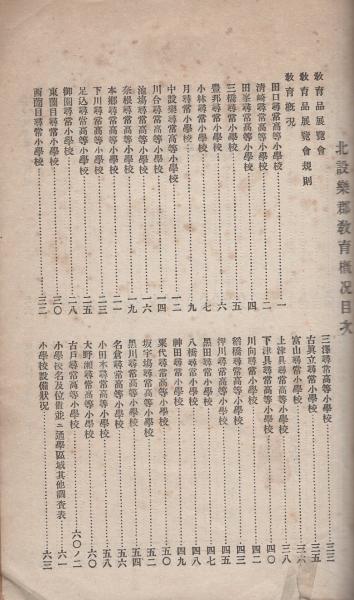 北設樂郡敎育概况目次
敎育品展覽會
敎育品展覽會規則
敎育概况
田口尋常高等小學校……一
淸崎尋常高等小學校……二
田峯尋常高等小學校……四
三橋尋常高等小學校……五
豊邦尋常小學校……六
小林尋常小學校……七
月尋常小學校……九
中設樂尋常高等小學校……一二
川合尋常高等小學校……一四
池塲尋常高等小學校……一六
奈根尋常高等小學校……一九
本鄕尋常高等小學校……二一
下川尋常高等小學校……二三
足込尋常高等小學校……二五
御園尋常小學校……二八
東薗目尋常小學校……三〇
西薗目尋常小學校……三二
三澤尋常高等小學校……三三
古眞立尋常小學校……三五
富山尋常小學校……三六
上津具尋常高等小學校……三八
下津具尋常高等小學校……四〇
川向尋常小學校……四二
鶴橋尋常高等小學校……四三
押川尋常高等小學校……四五
黑田尋常小學校……四七
八橋尋常小學校……四八
神田尋常小學校……四九
粟代尋常高等小學校……五〇
坂宇塲尋常高等小學校……五二
黑川尋常高等小學校……五四
名倉尋常高等小學校……五六
小田木尋常高等小學校……五八
大野瀨尋常高等小學校……六〇
古戸尋常高等小學校……六〇ノ二
小學校名及位置並ニ通學區域其他調査表……六一
小學校設備狀况……六三